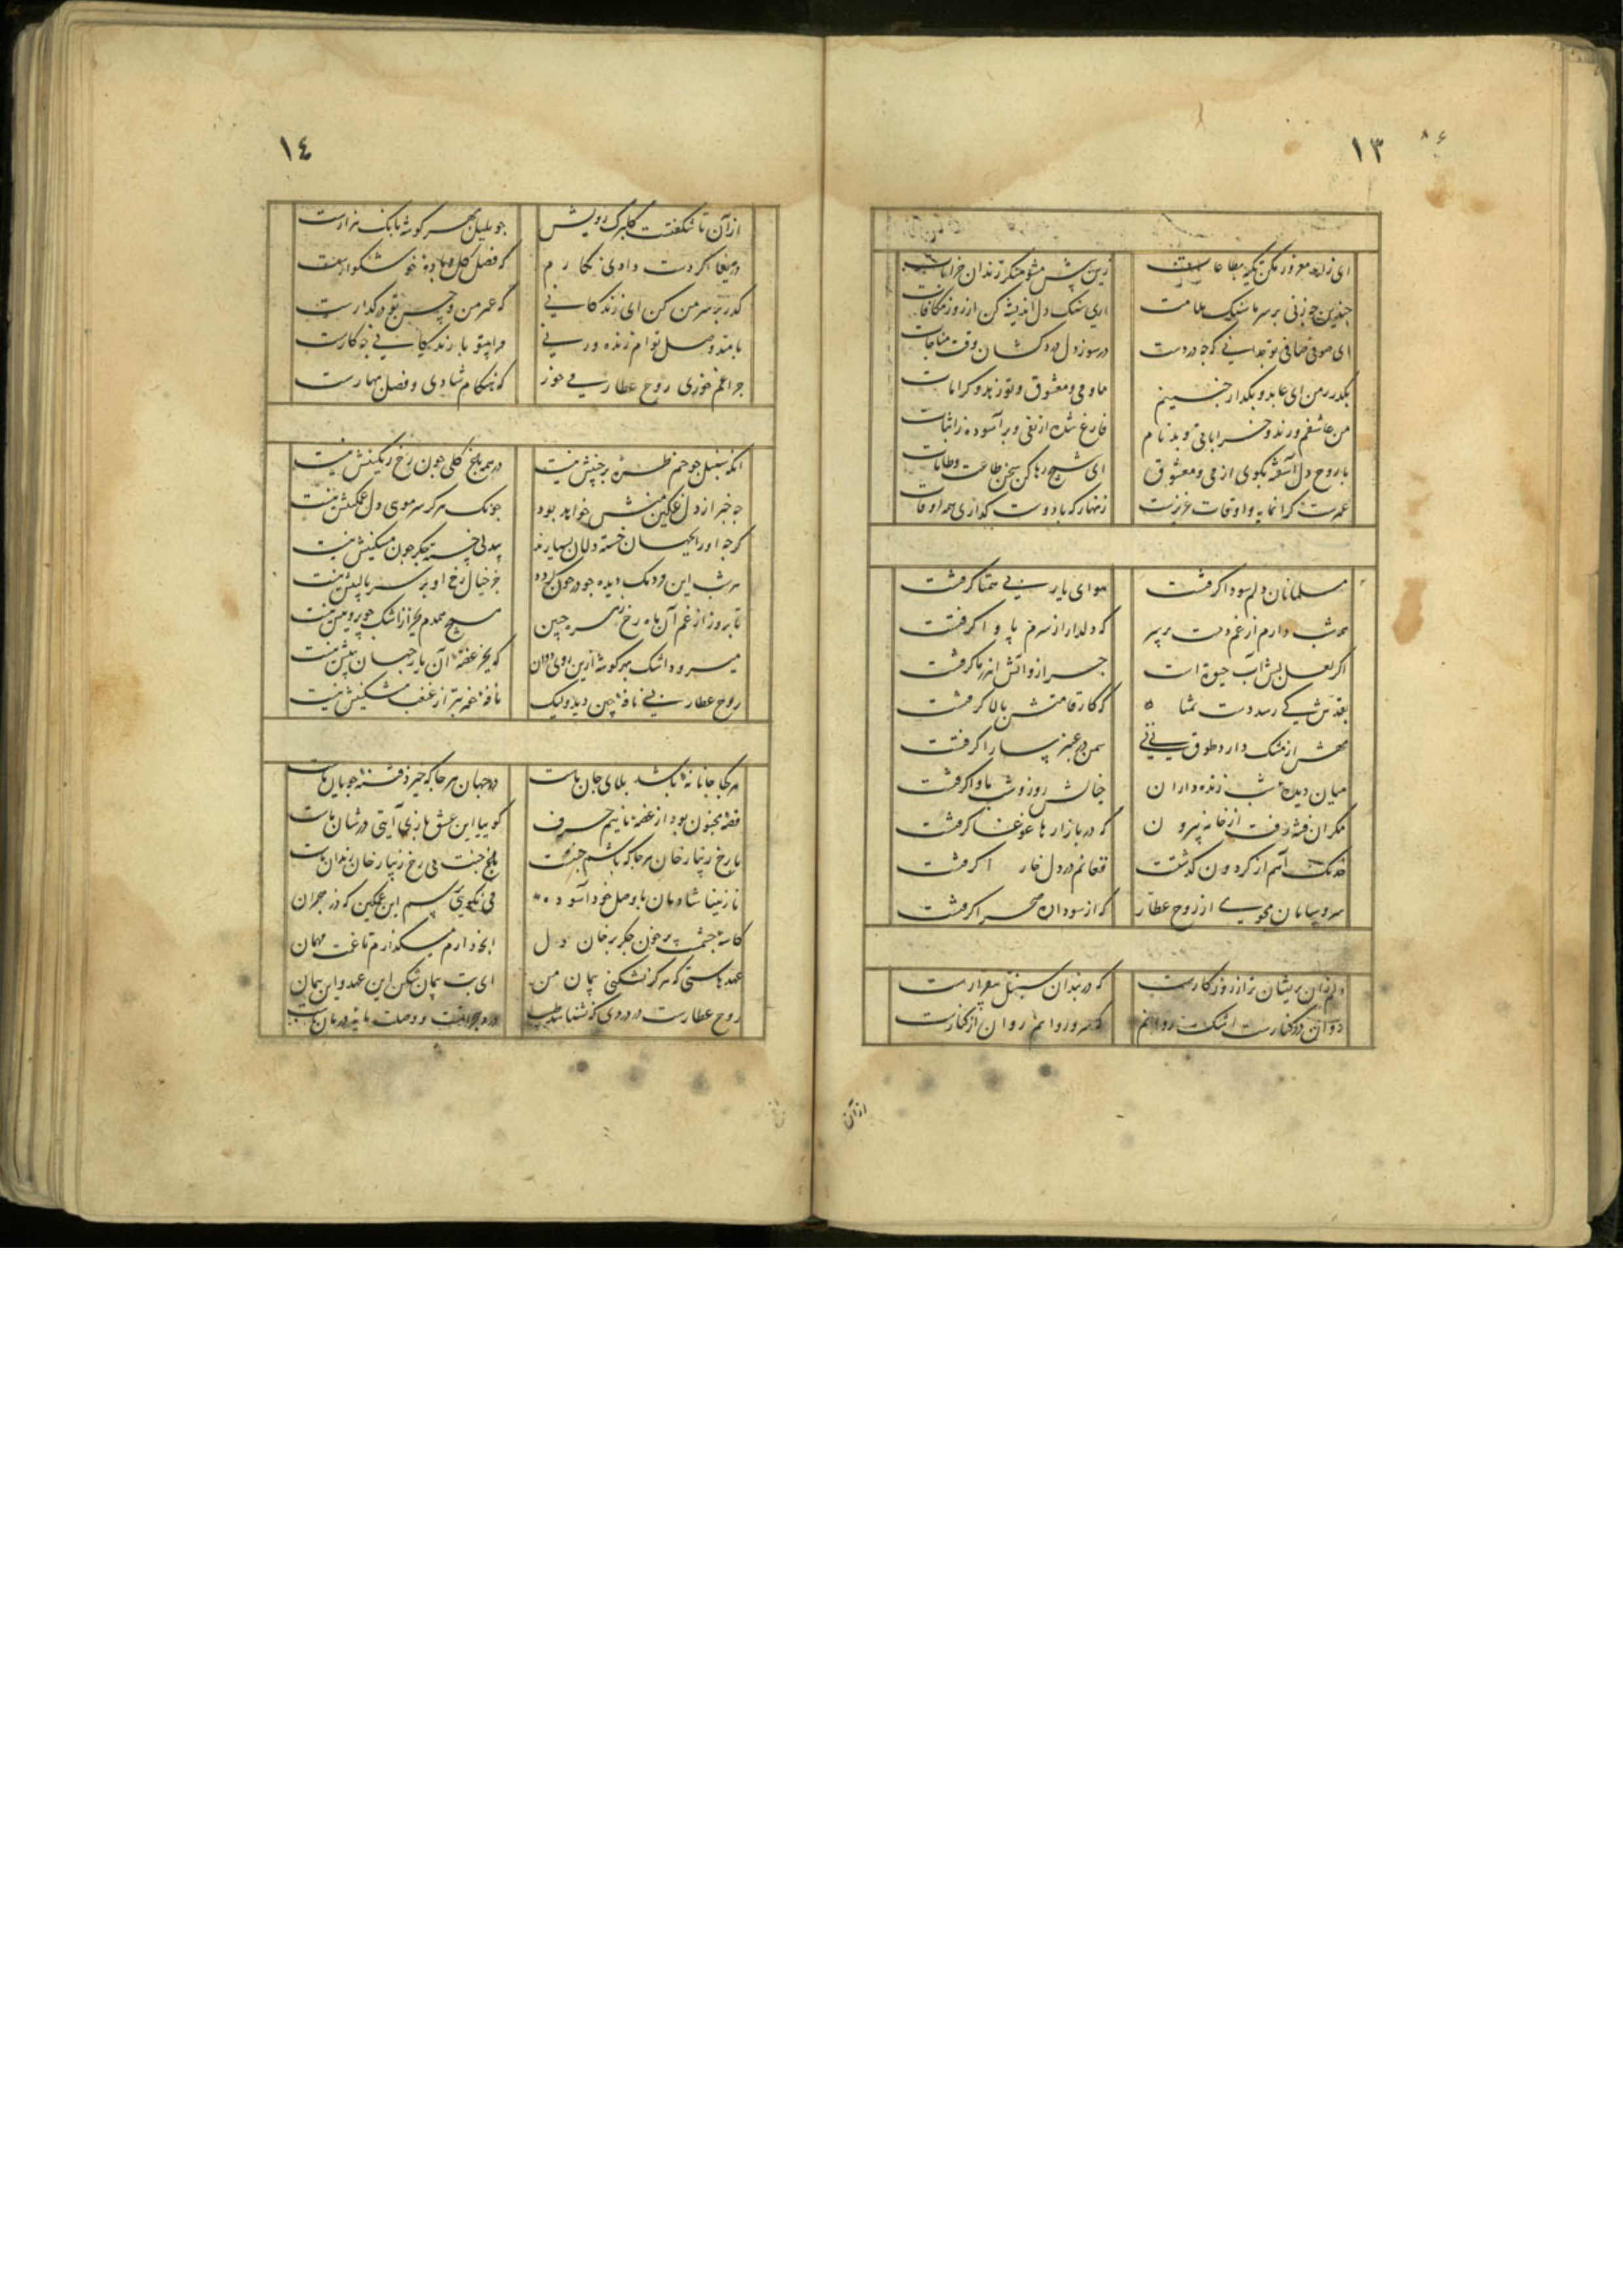 ١٣
ای زاهد مغرور مکن تکیه بطاعات زین پیش مشو منکر رندان خرابات
چندین چو زنی بر سر ما سنک ملامت ای سنک دل اندیشه کن از روز مکافات
ای صوفی صافی تو ندانی که چه دردست در سوز دل وقت مناجات
بگذر ز من ای عابد و بگذار چنینم ما و می و معشوق و تو زهد و کرامات
من عاشقم و رند و خراباتی و بدنام فارغ شده از نفی و بر آسوده ز اثبات
با روح دل آشفته بگوی از می و معشوق ای شیخ رها کن سخن طاعت و طامات
عمرت گرانمایه و اوقات عزیزست زنهار که با دوست گذاری همه اوقات
مسلمانان دلم سودا گرفتست هوای یار بی همتا گرفتست
همه شب دارم از غم دست بر سر که دلدار از سرم پا وا گرفتست
اگر لعل لبش آب حیوة است چرا زو آتش اندر ما گرفتست
بقدش کی رسد دست تمنا که کار قامتش بالا گرفتست
مهش از مشک دارد طوق یعنی سمن در عنبر سارا گرفتست
میان دیده شب زنده داران خیالش روز و شب ماوا گرفتست
مگر آن فتنه رفت از خانه بیرون که در بازارها غوغا گرفتست
خدنگ آهم از گردون گذشتست فغانم در دل خارا گرفتست
سر و سامان مجوی از روح عطار که از سودا ره صحرا گرفتست
دلم زان پریشان تر از روزگارست که در بند آن سنبل بیقرارست
روان در کنارست اشک روانم که سرو روانم روان از کنارست
از آن
١٤
از آن تا شکفتست گلبرگ رویش چو بلبل بهر گوشه بانک هزارست
دریغا گر دست دادی نگارم که فصل گل و باده خوشگوارست
گذر بر سر من کن ای زندگانی که عمر من و حسن تو در گذارست
بامید وصل توام زنده ورنی مرا بیتو با زندگانی چه کارست
چرا غم خوری روح عطار می خور که هنگام شادی و فصل بهارست
آنکه سنبل چو خم طره پرچینش نیست در همه باغ گلی چون رخ رنگینش نیست
چه خبر از دل غمگین منش خواهد بود چونک هرگز سر موی دل غمگینش نیست
گرچه او را بجهان خسته دلان بسیارند بیدلی خسته جگر چون من مسکینش نیست
هر شب این مردمک دیده چو در خون گردد جز خیال رخ او بر سر بالینش نیست
تا بروز از غم آن ماه رخ زهره جبین هیچ همدم بجز از اشک چو پروینش نیست
میرود اشک بهر گوشه ازین روی روان گویی بجز غصه آن یار جهان بینش نیست
روح عطار بسی نافه چین دید ولیک نافه خوشتر از غبغب مشکینش نیست
هر کجا جانانهٔ باشد بلای جان ماست در جهان هر جا که خیزد فتنه جویان ماست
قصه مجنون بود از غصه ما نیم حرف گوییا این عشق بازی آیتی در شان ماست
با رخ زیبا رخان هر جا که باشم جنتست باغ جنت بی رخ زیبا رخان زندان ماست
نازنینا شادمان با وصل خود آسوده می نگویی آخر این غمگین که در هجران ماست
کاسه چشمت پر خون جگر بر خوان دل آنچه دارم میگذارم تا غمت مهمان ماست
عهد بستی که هرگز نشکنی پیمان من ای بت پیمان شکن این عهد و این پیمان ماست
روح عطارست در دردی که نشناسد طبیب درد هجرانست و وصلت مایه درمان ماست